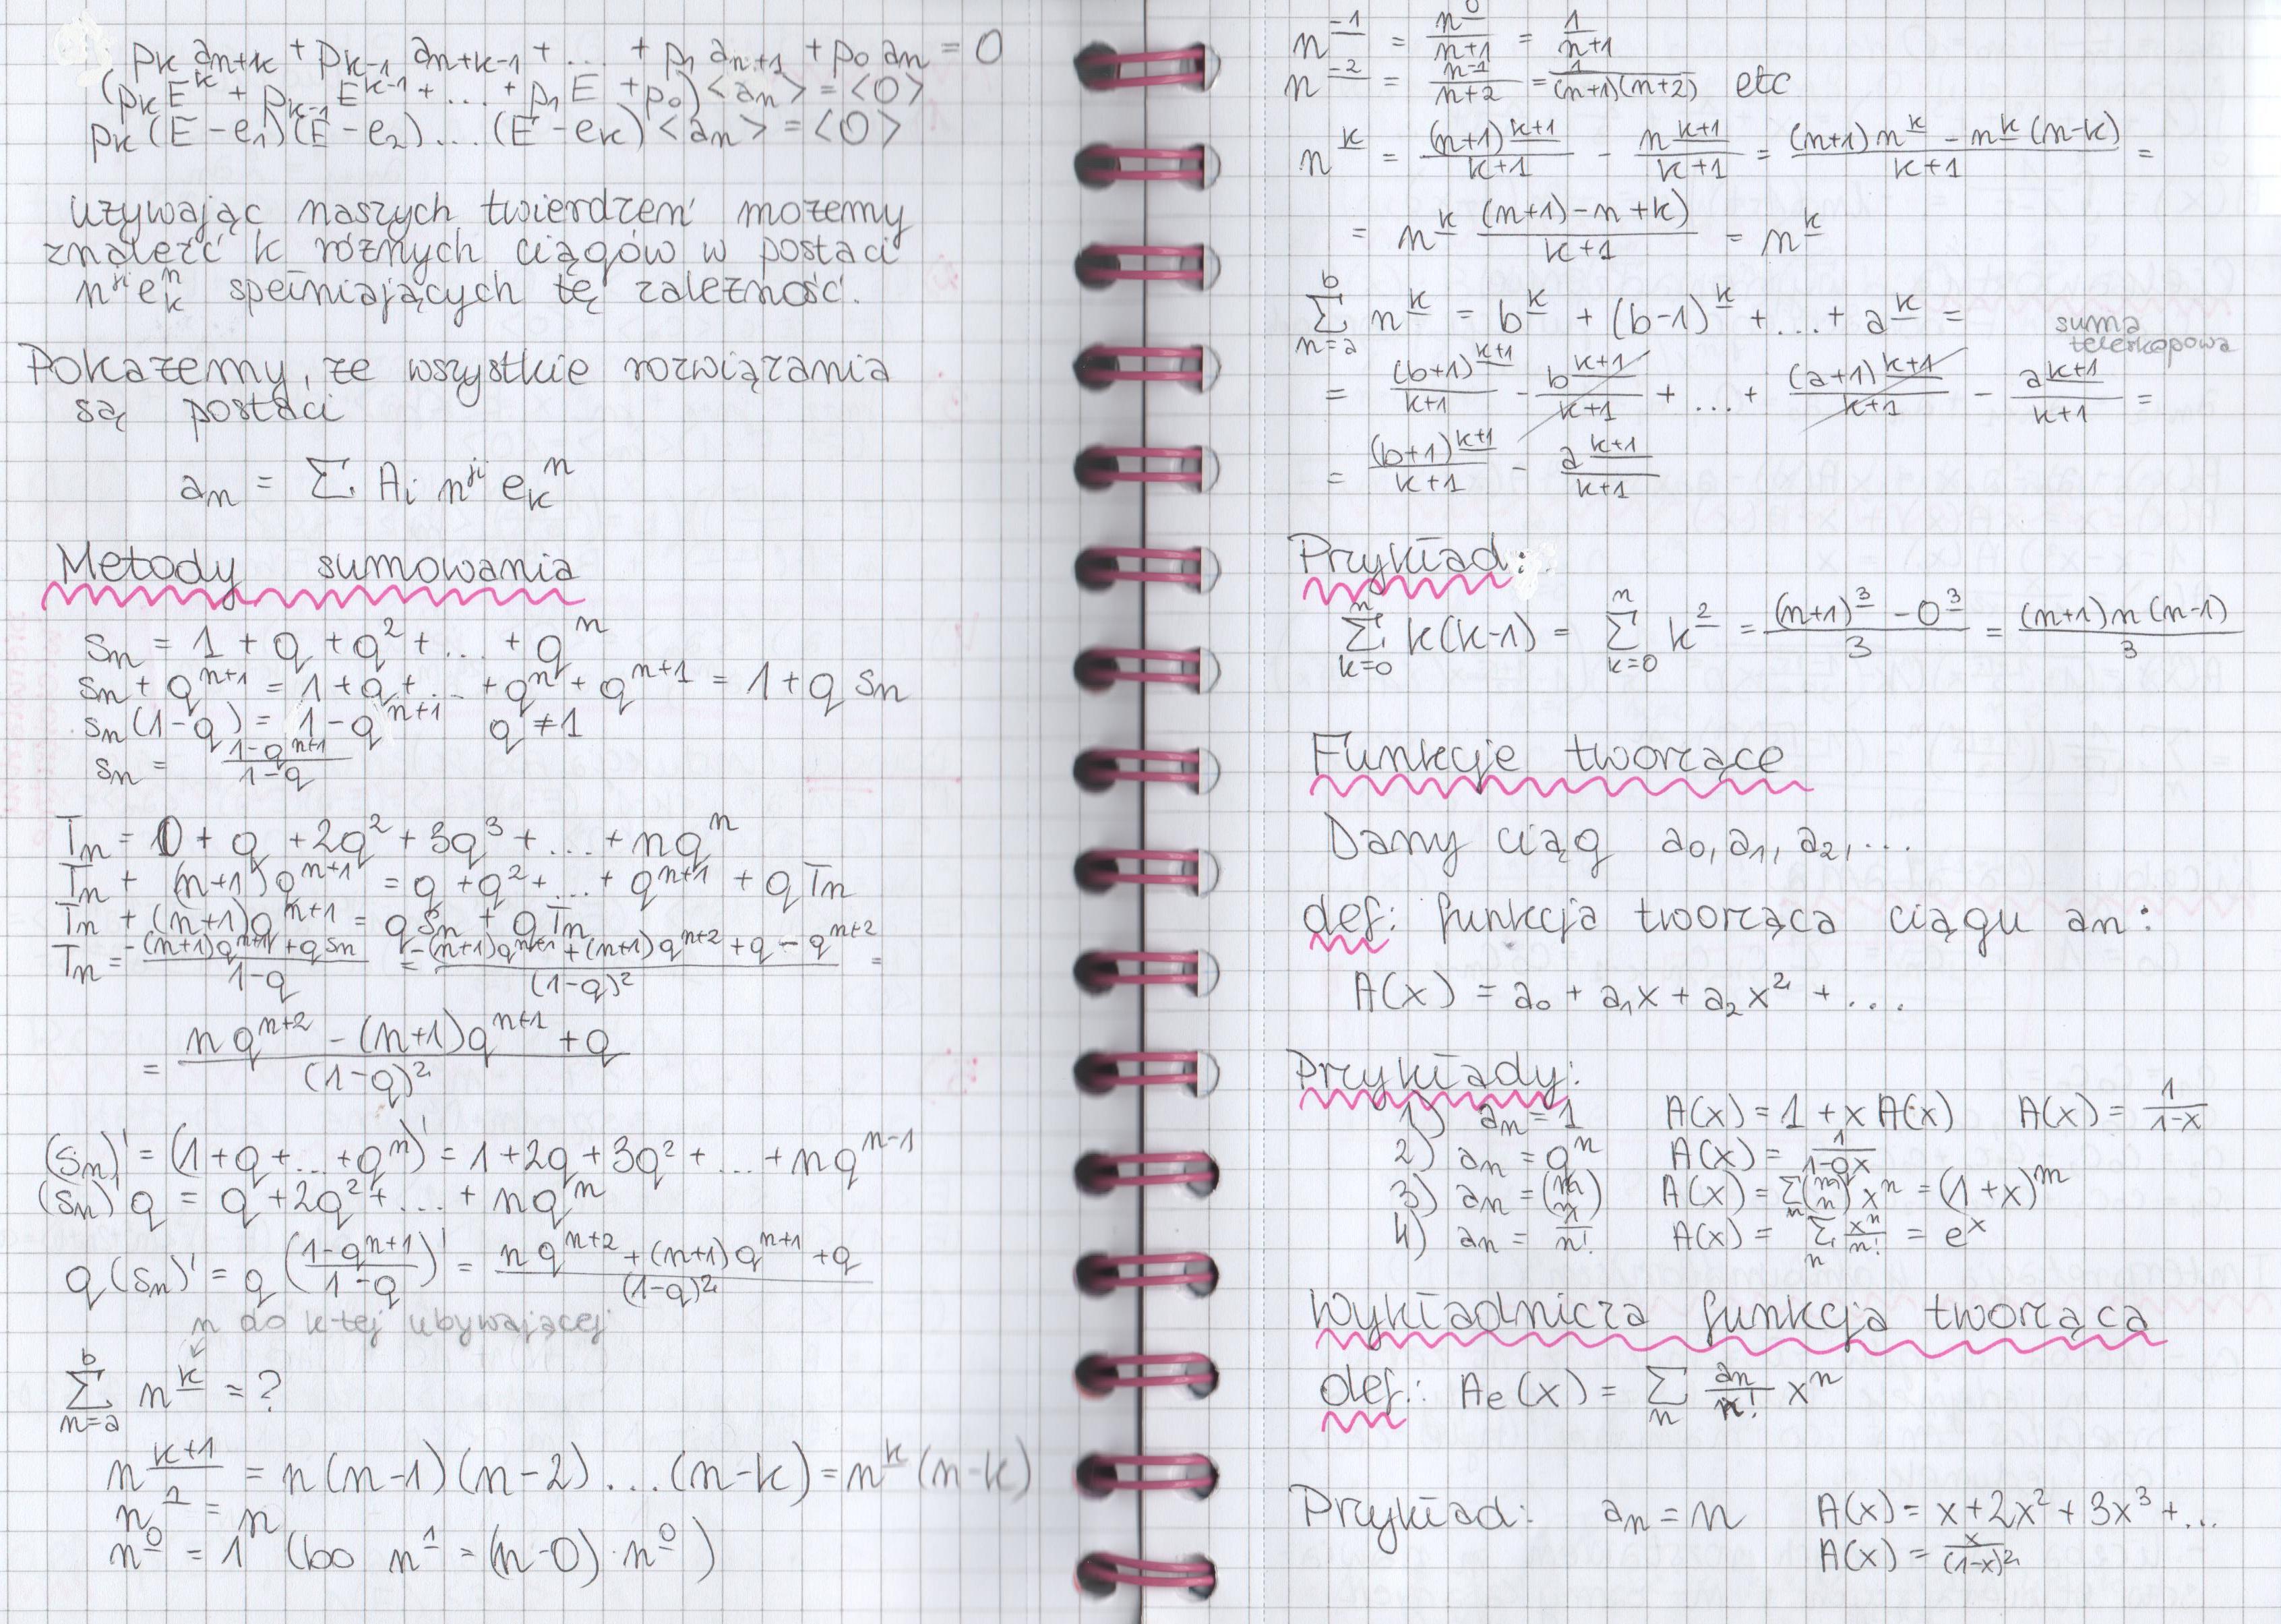 pₖ aₙ₊ₖ + pₖ₋₁ aₙ₊ₖ₋₁ + ... + p₁ aₙ₊₁ + p₀ aₙ = 0
(pₖ E^k + pₖ₋₁ E^{k-1} + ... + p₁ E + p₀) <aₙ> = <0>
pₖ (E - e₁)(E - e₂) ... (E - eₖ) <aₙ> = <0>
używając naszych twierdzeń możemy
znaleźć k różnych ciągów w postaci
n^{ji} e_k^n spełniających tę zależność.
Pokażemy, że wszystkie rozwiązania
są postaci
aₙ = Σ Aᵢ n^{ji} e_k^n
Metody sumowania
sₙ = 1 + q + q² + ... + q^n
sₙ + q^{n+1} = 1 + q + ... + q^n + q^{n+1} = 1 + q sₙ
sₙ(1-q) = 1 - q^{n+1} q ≠ 1
sₙ = (1-q^{n+1})/(1-q)
Tₙ = 0 + q + 2q² + 3q³ + ... + nq^n
Tₙ + (n+1)q^{n+1} = q + q² + ... + q^{n+1} + qTₙ
Tₙ + (n+1)q^{n+1} = qsₙ + qTₙ
Tₙ = (-(n+1)q^{n+1} + qsₙ)/(1-q) = (-(n+1)q^{n+1} + (n+1)q^{n+2} + q - q^{n+2})/((1-q)²) =
= (nq^{n+2} - (n+1)q^{n+1} + q)/((1-q)²)
(sₙ)' = (1+q+...+q^n)' = 1 + 2q + 3q² + ... + nq^{n-1}
(sₙ)' q = q + 2q² + ... + nq^n
q(sₙ)' = q((1-q^{n+1})/(1-q))' = (nq^{n+2} + (n+1)q^{n+1} + q)/((1-q)²)
n do k-tej ubywającej
Σ_{n=a}^{b} n^{k̲} = ?
n^{k+1̲} = n(n-1)(n-2)...(n-k) = n^{k̲}(n-k)
n^{1̲} = n
n^{0̲} = 1 (bo n^{1̲} = (n-0)·n^{0̲})
n^{-1̲} = n^{0̲}/(n+1) = 1/(n+1)
n^{-2̲} = n^{-1̲}/(n+2) = 1/((n+1)(n+2)) etc
n^{k̲} = (n+1)^{k+1̲}/(k+1) - n^{k+1̲}/(k+1) = ((n+1)n^{k̲} - n^{k̲}(n-k))/(k+1) =
= n^{k̲} ((n+1)-n+k)/(k+1) = n^{k̲}
Σ_{n=a}^{b} n^{k̲} = b^{k̲} + (b-1)^{k̲} + ... + a^{k̲} =
suma
teleskopowa
= (b+1)^{k+1̲}/(k+1) - b^{k+1̲}/(k+1) + ... + (a+1)^{k+1̲}/(k+1) - a^{k+1̲}/(k+1) =
= (b+1)^{k+1̲}/(k+1) - a^{k+1̲}/(k+1)
Przykład:
Σ_{k=0}^{n} k(k-1) = Σ_{k=0}^{n} k^{2̲} = ((n+1)^{3̲} - 0^{3̲})/3 = ((n+1)n(n-1))/3
Funkcje tworzące
Dany ciąg a₀, a₁, a₂, ...
def: funkcja tworząca ciągu aₙ:
A(x) = a₀ + a₁x + a₂x² + ...
Przykłady:
1) aₙ = 1 A(x) = 1 + xA(x) A(x) = 1/(1-x)
2) aₙ = q^n A(x) = 1/(1-qx)
3) aₙ = (m n) A(x) = Σ_n (m n) x^n = (1+x)^m
4) aₙ = 1/n! A(x) = Σ_n x^n/n! = e^x
Wykładnicza funkcja tworząca
def.: Ae(x) = Σ_n aₙ/n! x^n
Przykład: aₙ = n A(x) = x + 2x² + 3x³ + ...
A(x) = x/(1-x)²